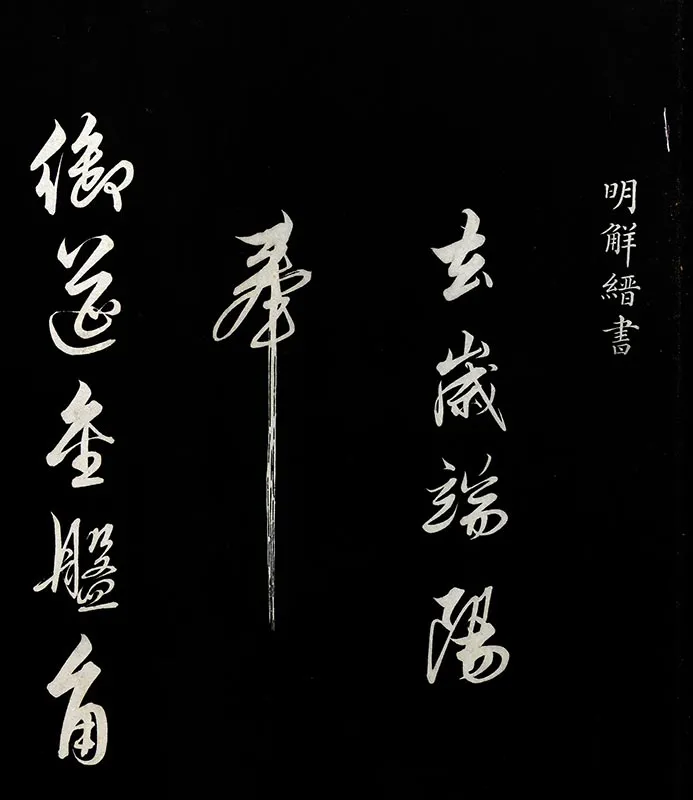 明解縉書
去歲端陽
奉
御筵金盤角